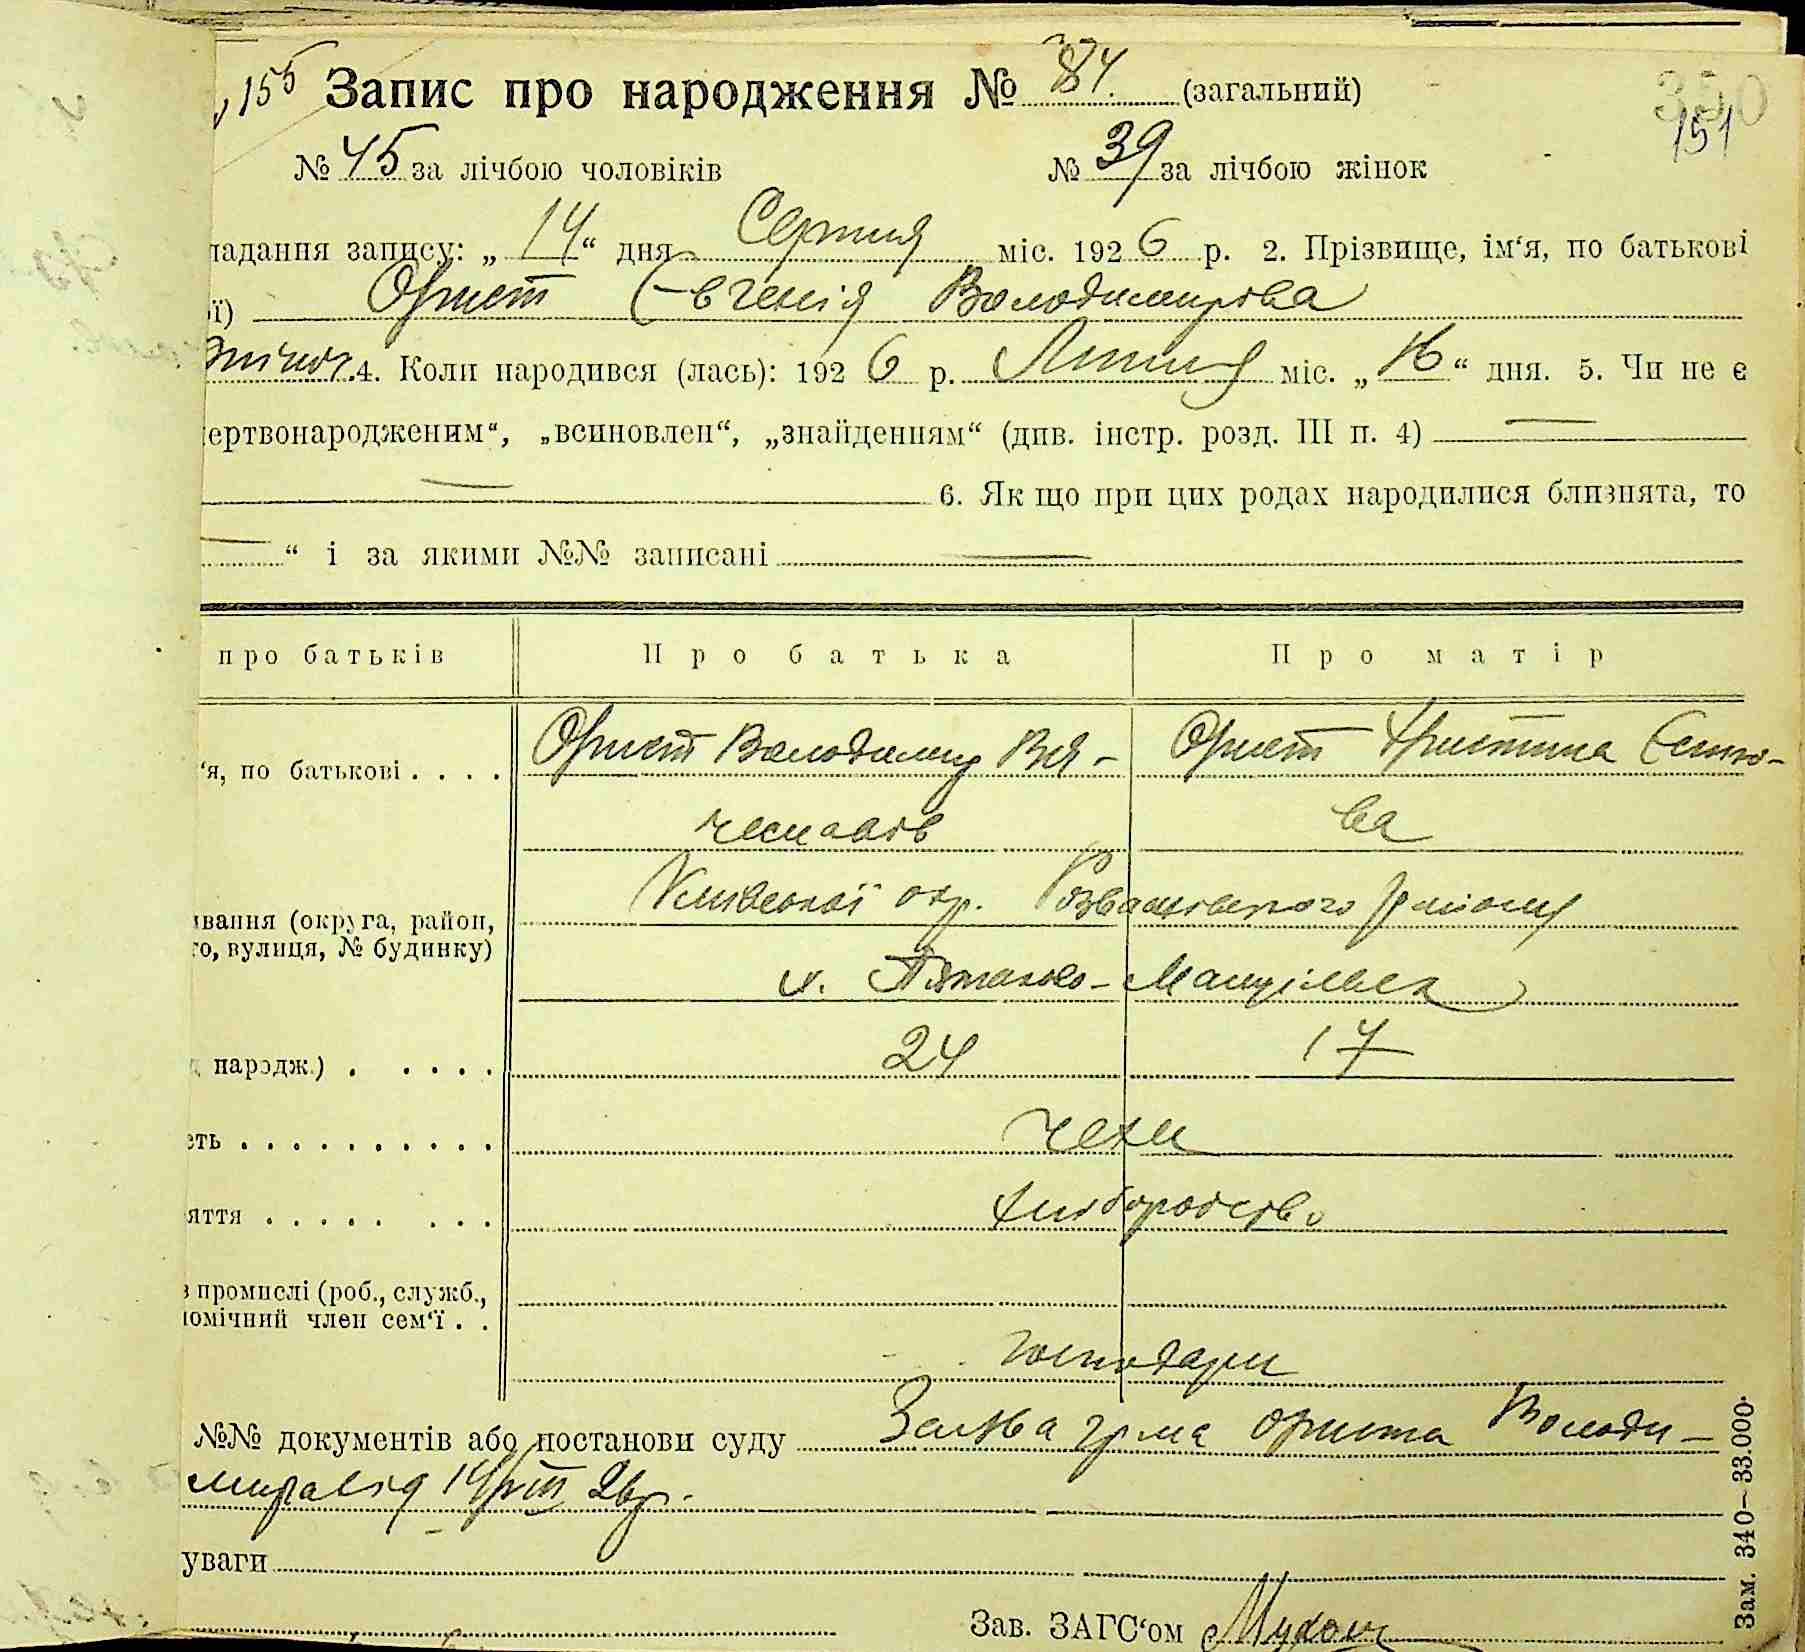 155 Запис про народження № 84. (загальний) 350
151
№ 45 за лічбою чоловіків № 39 за лічбою жінок
ладання запису: „ 14 “ дня Серпня міс. 1926 р. 2. Прізвище, ім‘я, по батькові
ї) Орист Євгенія Володимирова
4. Коли народився (лась): 1926 р. Липня міс. „ 16 “ дня. 5. Чи не є
ертвонародженим“, „всиновлен“, „знайденням“ (див. інстр. розд. III п. 4) —
— 6. Як що при цих родах народилися близнята, то
— “ і за якими №№ записані —
про батьків Про батька Про матір
‘я, по батькові . . . . Орист Володимир Вя- Орист Христина
чеславів ва
Київської окр. Розважівського району
ивання (округа, район,
го, вулиця, № будинку)
Мацілеьк
народж.) . . . . . 24 17
сть . . . . . . . . . . чехи
яття . . . . . . . . хліборобство
з промислі (роб., служб.,
номічний член сем‘ї . .
господарі
№№ документів або постанови суду Заява гр-на Ориста Володи-
мира від 14/VIII 26р.
уваги
Зав. ЗАГС‘ом
Зам. 340—33.000.